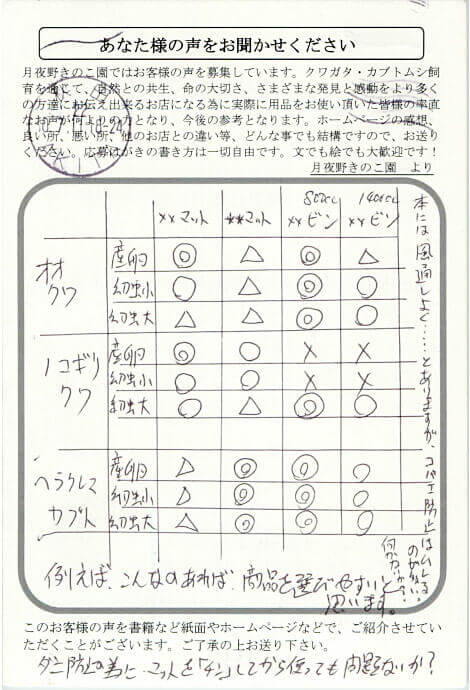 あなた様の声をお聞かせください
月夜野きのこ園ではお客様の声を募集しています。クワガタ・カブトムシ飼
育を通じて、自然との共生、命の大切さ、さまざまな発見と感動をより多く
の方達にお伝え出来るお店になる為に実際に用品をお使い頂いた皆様の率直
なお声が何よりの力となり、今後の参考となります。ホームページの感想、
良い所、悪い所、他のお店との違い等、どんな事でも結構ですので、お送り
ください。応募はがきの書き方は一切自由です。文でも絵でも大歓迎です!
月夜野きのこ園 より
800cc 1400cc
××マット **マット ××ビン ××ビン
オオクワ
産卵 ◎ △ ◎ △
幼虫小 ○ △ ◎ ○
幼虫大 △ △ ◎ ○
ノコギリクワ
産卵 ◎ ○ × ×
幼虫小 ○ ○ × ×
幼虫大 ○ △ ◎ ○
ヘラクレスカブト
産卵 △ ◎ ◎ ○
幼虫小 △ ◎ ◎ ○
幼虫大 △ ◎ ◎ ○
本には、風通しよく……とありますが、コバエ防止はムレる。
何か
例えば、こんなのあれば、商品を選びやすいと
思います。
このお客様の声を書籍など紙面やホームページなどで、ご紹介させてい
ただくことがございます。ご了承の上お送り下さい。
ダニ防止の為に、マットを「チン」してから使っても問題ないか?